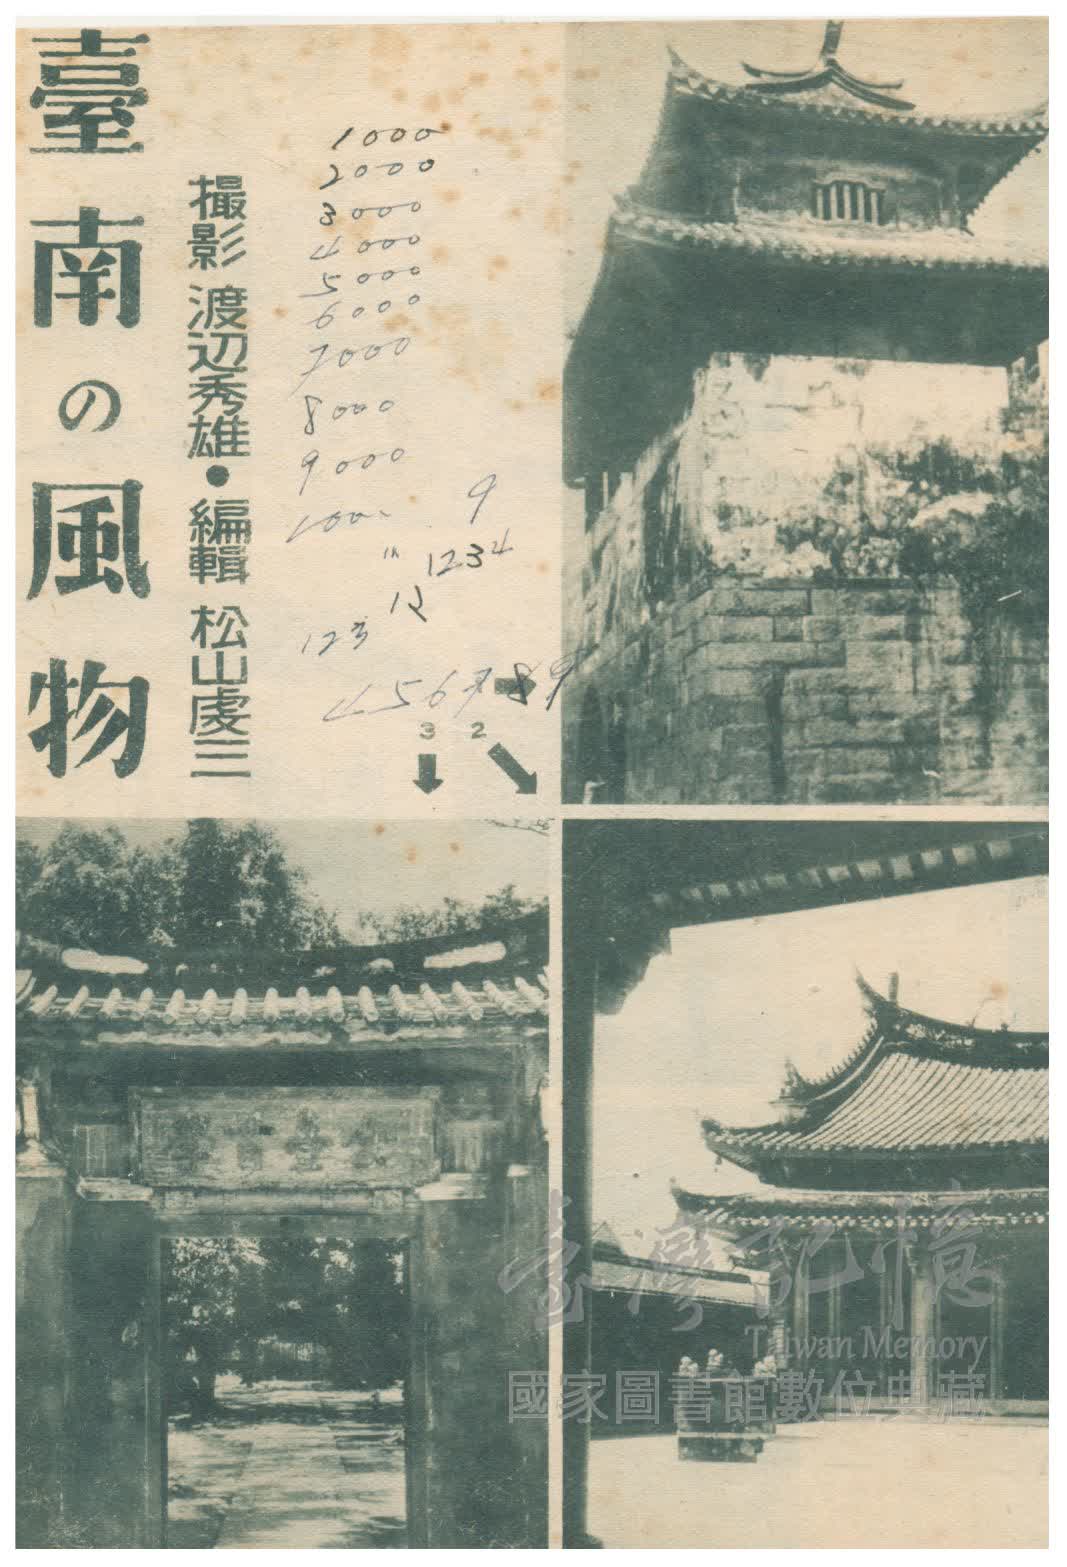 臺南の風物
撮影 渡辺秀雄・編輯 松山虔三
1000
2000
3000
4000
5000
6000
7000
8000
9000
100
9
1234
12
123
456789
3 2
臺灣記憶
Taiwan Memory
國家圖書館數位典藏